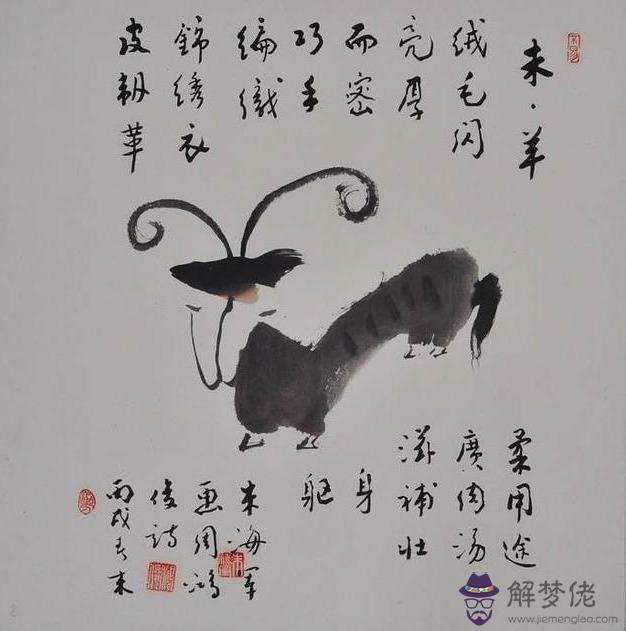 未·羊
绒毛闪
亮厚
而密
巧手
编織
錦绣衣
皮韌革
柔用途
廣肉汤
滋補壮
身
躯
朱海军
画周鸿
俊诗
丙戌春末
解梦佬
www.jiemenglao.com